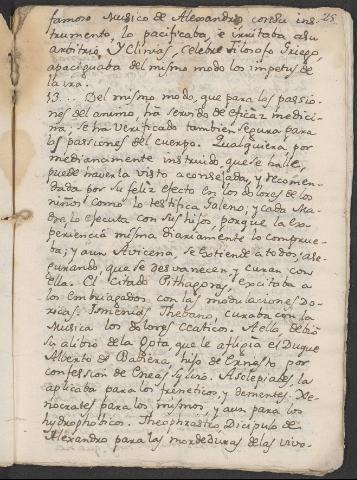 25.
famoso Musico de Alexandro con su ins-
trumento, lo pacificaba, e irritaba a su
arbitrio. Y Clinias, celebre Filosofo Griego,
apaciguaba del mismo modo los impetus de
la ira.
13... Del mismo modo, que para las passio-
nes del animo, ha servido de eficaz medici-
na, se ha verificado tambien segura para
las passiones del cuerpo. Qualquiera por
medianamente instruido, que se halle,
puede haverla visto aconsejada, y recomen-
dada por su feliz efecto en los dolores de los
niños como lo testifica Galeno; y cada Ma-
dre lo ejecuta con sus hijos, porque la ex-
periencia misma diariamente lo comprue-
ba; y aun Avicena, se extiende a todos, ase-
gurando, que se desvanecen, y curan con
ella. El citado Pithagoras, excitaba a
los embriagados con las modulaciones Do-
ricas. Ismenias Thebano, curaba con la
Musica los dolores Cеaticos. A ella debiò
su alibio de la Gota, que le afligia el Duque
Alberto de Babiera hijo de Ernesto por
confession de Eneas Sylvio. Asclepiades, la
aplicaba para los freneticos, y dementes. Xe-
nocrates para los mismos, y aun para los
hydrophobicos. Theophrastro, Dicipulo de
Alexandro para las mordeduras de las vivo-